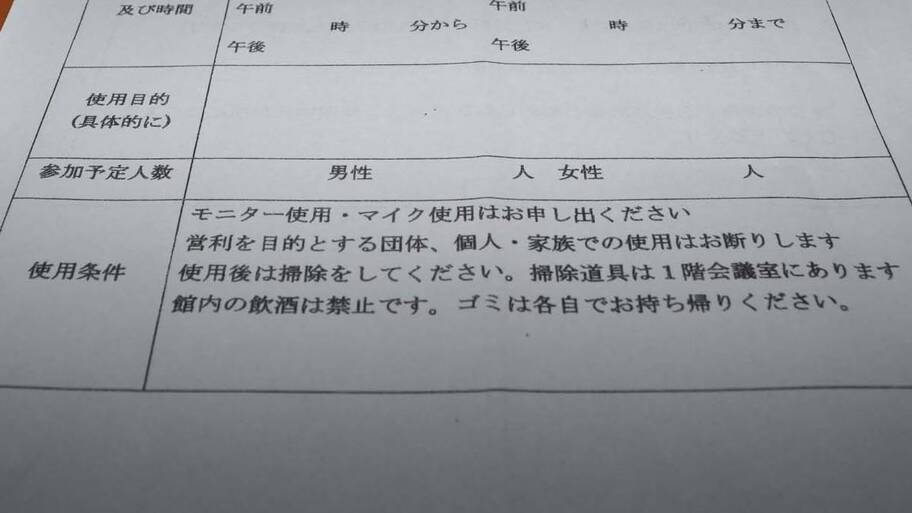 及び時間
午前 午前
時 分から 時 分まで
午後 午後
使用目的
(具体的に)
参加予定人数 男性 人 女性 人
使用条件
モニター使用・マイク使用はお申し出ください
営利を目的とする団体、個人・家族での使用はお断りします
使用後は掃除をしてください。掃除道具は１階会議室にあります
館内の飲酒は禁止です。ゴミは各自でお持ち帰りください。